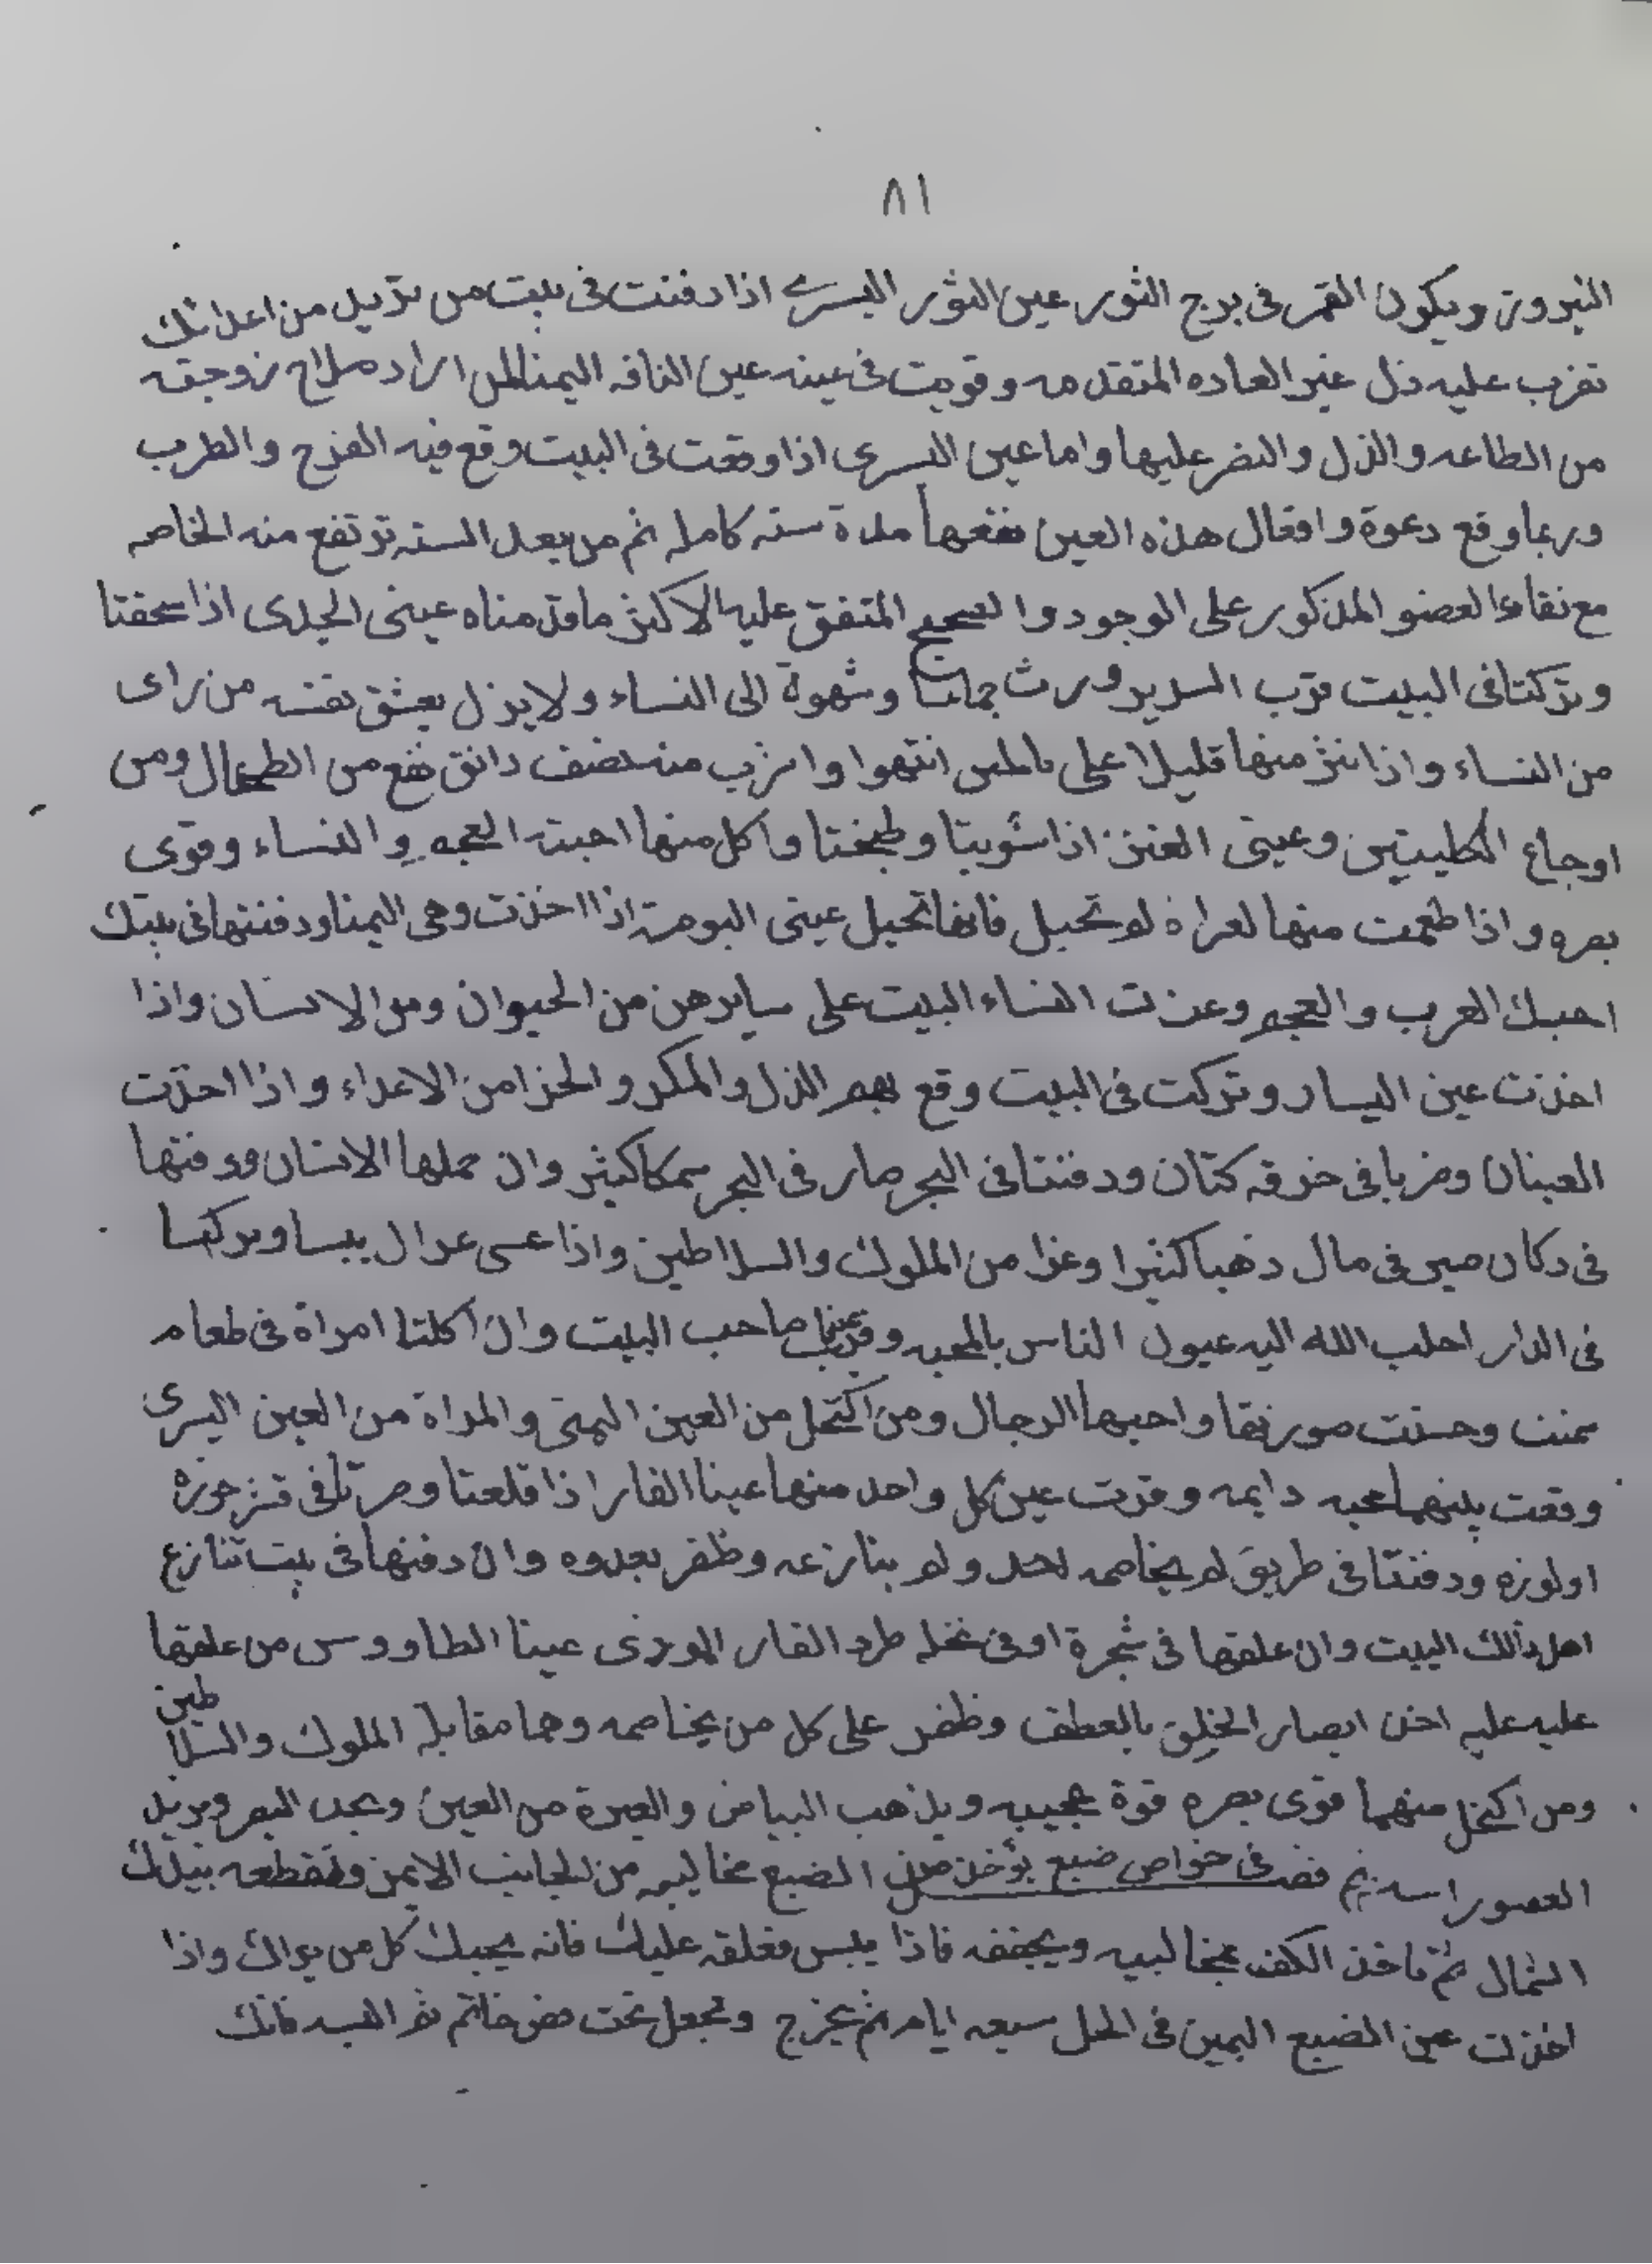 ٨١
النيروز ويكون القمر فى برج الثور عين الثور اليسرى اذا دفنت فى بيت من تريد من اعدائك
عليه ذل غير العاده المتقدمه وقويت فى عينه عين الناقه اليمنا لمن اراد صلاح زوجته
من الطاعه والذل والنصر عليها واما عين اليسرى اذا وقعت فى البيت وقع فيه الفرح والطرب
وربما وقع دعوة وافعال هذه العين مدة سنه كامله ثم من بعد السنه ترتفع منه الخاصه
مع نقاء العضو المذكور على الوجود والصحيح المتفق عليه الاكثر ما قدمناه عينى الجدى اذا سحقتا
وتركتا فى البيت قرب السرير ورث جماعا وشهوة الى النساء ولا يزل يعشق نفسه من راى
من النساء واذا نثر منها قليلا على منه نصف دانق نفع من الطحال ومن
اوجاع الكليتين وعينى العنز اذا شويتا وطبختا واكل منها احبته العجم والنساء وقوى
بصره واذا طعمت منها لمراة لم تحبل فانها تحبل عينى البومة اذا اخذت وهى اليمنا ودفنتها فى بيتك
احبك العرب والعجم وعزت النساء البيت على سايرهن من الحيوان ومن الانسان واذا
اخذت عين اليسار وتركت فى البيت وقع بهم الذل والمكر والخزا من الاعداء واذا اخذت
العينان وضربا فى خرقه كتان ودفنتا فى البحر صار فى البحر سمكا كثير وان حملها الانسان ودفنها
فى دكان صيرفى مال ذهبا كثيرا وعزا من الملوك والسلاطين واذا يبسا وتركتا
فى الدار احلب الله اليه عيون الناس بالمحبه صاحب البيت وان اكلتا امراة فى طعام
سمنت وحسنت صورتها واحبها الرجال ومن اكتحل من العين اليمنى والمراة من العين اليسرى
وقعت بينهما محبه دايمه وقرت عين كل واحد منهما عينا الفار اذا قلعتا وصرتا فى قشر جوزه
او لوزه ودفنتا فى طريق لم يخاصمه احد ولم ينازعه وظفر بعدوه وان دفنها فى بيت تنازع
اهل ذالك البيت وان علقها فى شجرة او فى نخله طرد الفار الموذى عينا الطاووس من علقها
عليه اخذ ابصار الخلق بالعطف وظفر على كل من يخاصمه وهما مقابلة الملوك والسلاطين
ومن اكتحل منهما قوى بصره قوة عجيبه ويذهب البياض والعبرة من العين ويحد البصر ويزيل
ثم فصد فى خواص ضبع يؤخذ من الضبع مخاليبه من الجانب الايمن وتقطعه بيدك
الشمال ثم تاخذ الكف بمخالبيه ويجففه فاذا يبس فعلقه عليك فانه يحبك كل من يراك واذا
اخذت عين الضبع اليمين فى الخل سبعه ايام ثم يخرج وتجعل تحت فص خاتم ثم البسه فانك